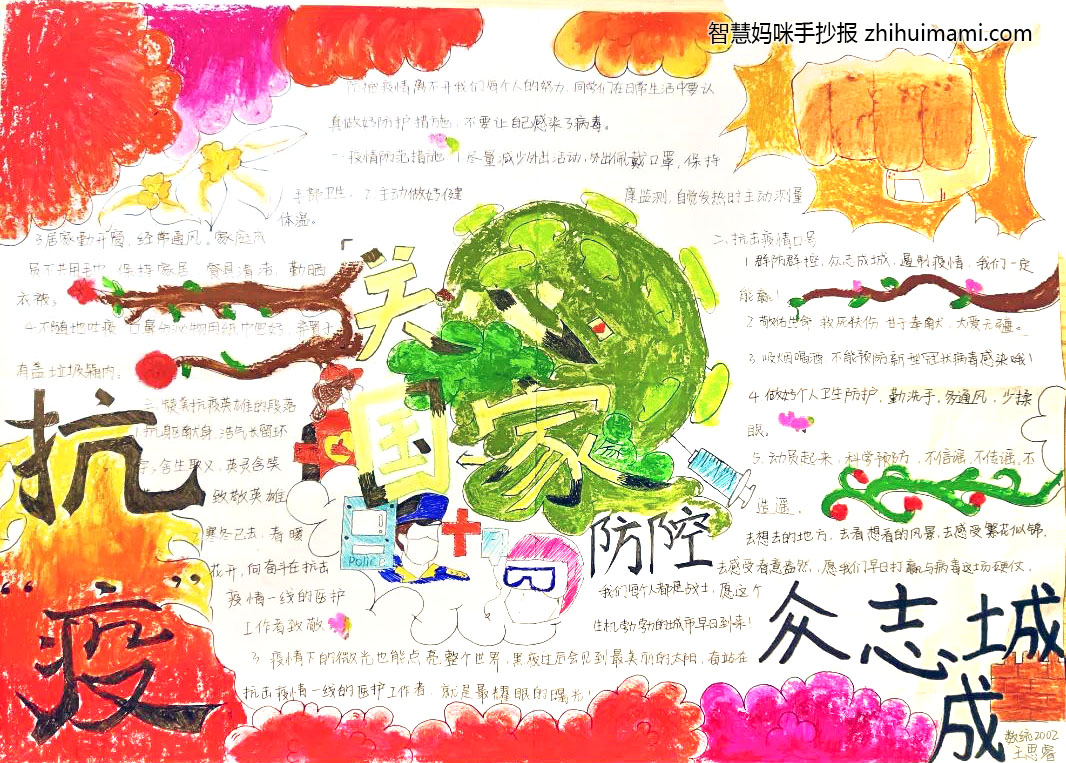 智慧妈咪手抄报 zhihuimami.com
防控疫情离不开我们每个人的努力,同学们在日常生活中要认
真做好防护措施,不要让自己感染了病毒。
一、疫情防范措施 1.尽量减少外出活动,外出佩戴口罩,保持
手部卫生。2.主动做好健
康监测,自觉发热时主动测量
体温。
3.居家勤开窗,经常通风。家庭成
员不共用毛巾,保持家居、餐具清洁,勤晒
衣被。
4.不随地吐痰,口鼻分泌物用纸巾包好,弃置于
有盖垃圾箱内。
关
国家
抗
“疫”
二、抗击疫情口号
1.群防群控,众志成城,遏制疫情,我们一定
能赢!
2.敬佑生命 救死扶伤 甘于奉献,大爱无疆。
3.吸烟喝酒 不能预防新型冠状病毒感染哦!
4.做好个人卫生防护,勤洗手,多通风,少揉
眼。
5.动员起来,科学预防,不信谣,不传谣,不
造谣。
三、赞美抗疫英雄的段落
1.抗 献身,浩气长留环
宇,舍生取义,英灵含笑
致敬英雄
2.寒冬已去,春暖
花开,向奋斗在抗击
疫情一线的医护
工作者致敬
3.疫情下的微光也能点亮整个世界,黑夜过后会见到最美丽的太阳,奋站在
抗击疫情一线的医护工作者,就是最耀眼的曙光!
Police
防控
去想去的地方,去看想看的风景,去感受繁花似锦,
去感受春意盎然,愿我们早日打赢与病毒这场硬仗,
我们每个人都是战士,愿这个
生机勃勃的城市早日到来!
众志城
成
2002
王思睿